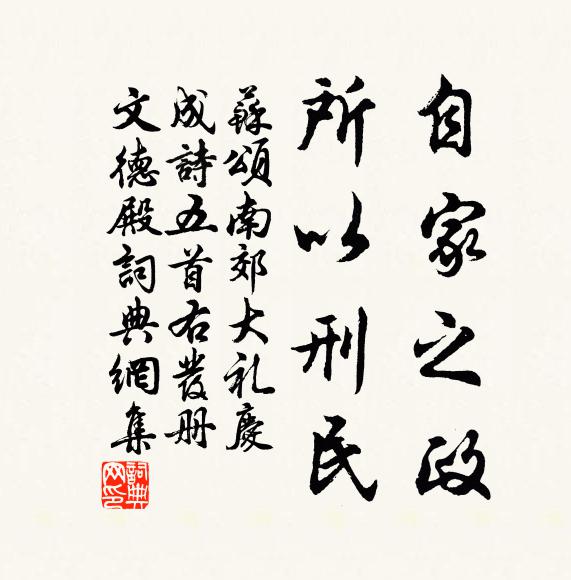 自家之政
所以刑民
蘇頌南郊大礼慶
成詩五首右發册
文德殿詞典網集
詞典网印